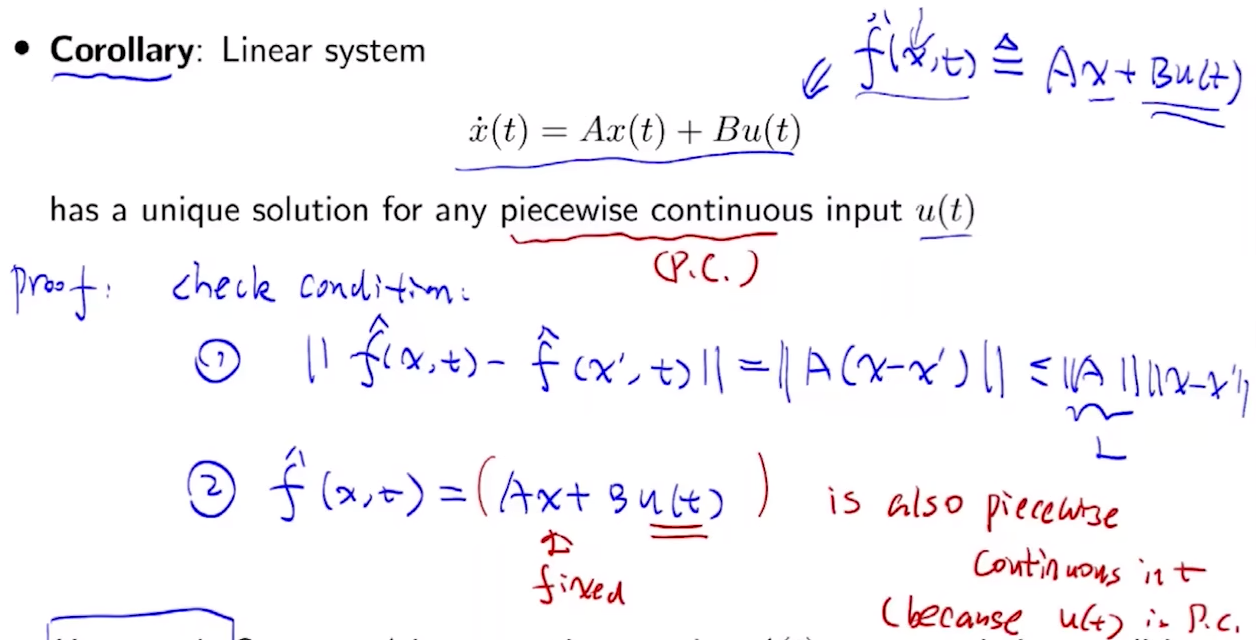 • Corollary: Linear system
f̂(x,t) ≜ Ax + Bu(t)
ẋ(t) = Ax(t) + Bu(t)
has a unique solution for any piecewise continuous input u(t)
(P.C.)
Proof: check condition:
① || f̂(x,t) - f̂(x',t) || = || A(x-x') || ≤ ||A|| ||x-x'||
L
② f̂(x,t) = (Ax + Bu(t)) is also piecewise
fixed
continuous in t
(because u(t) is P.C.